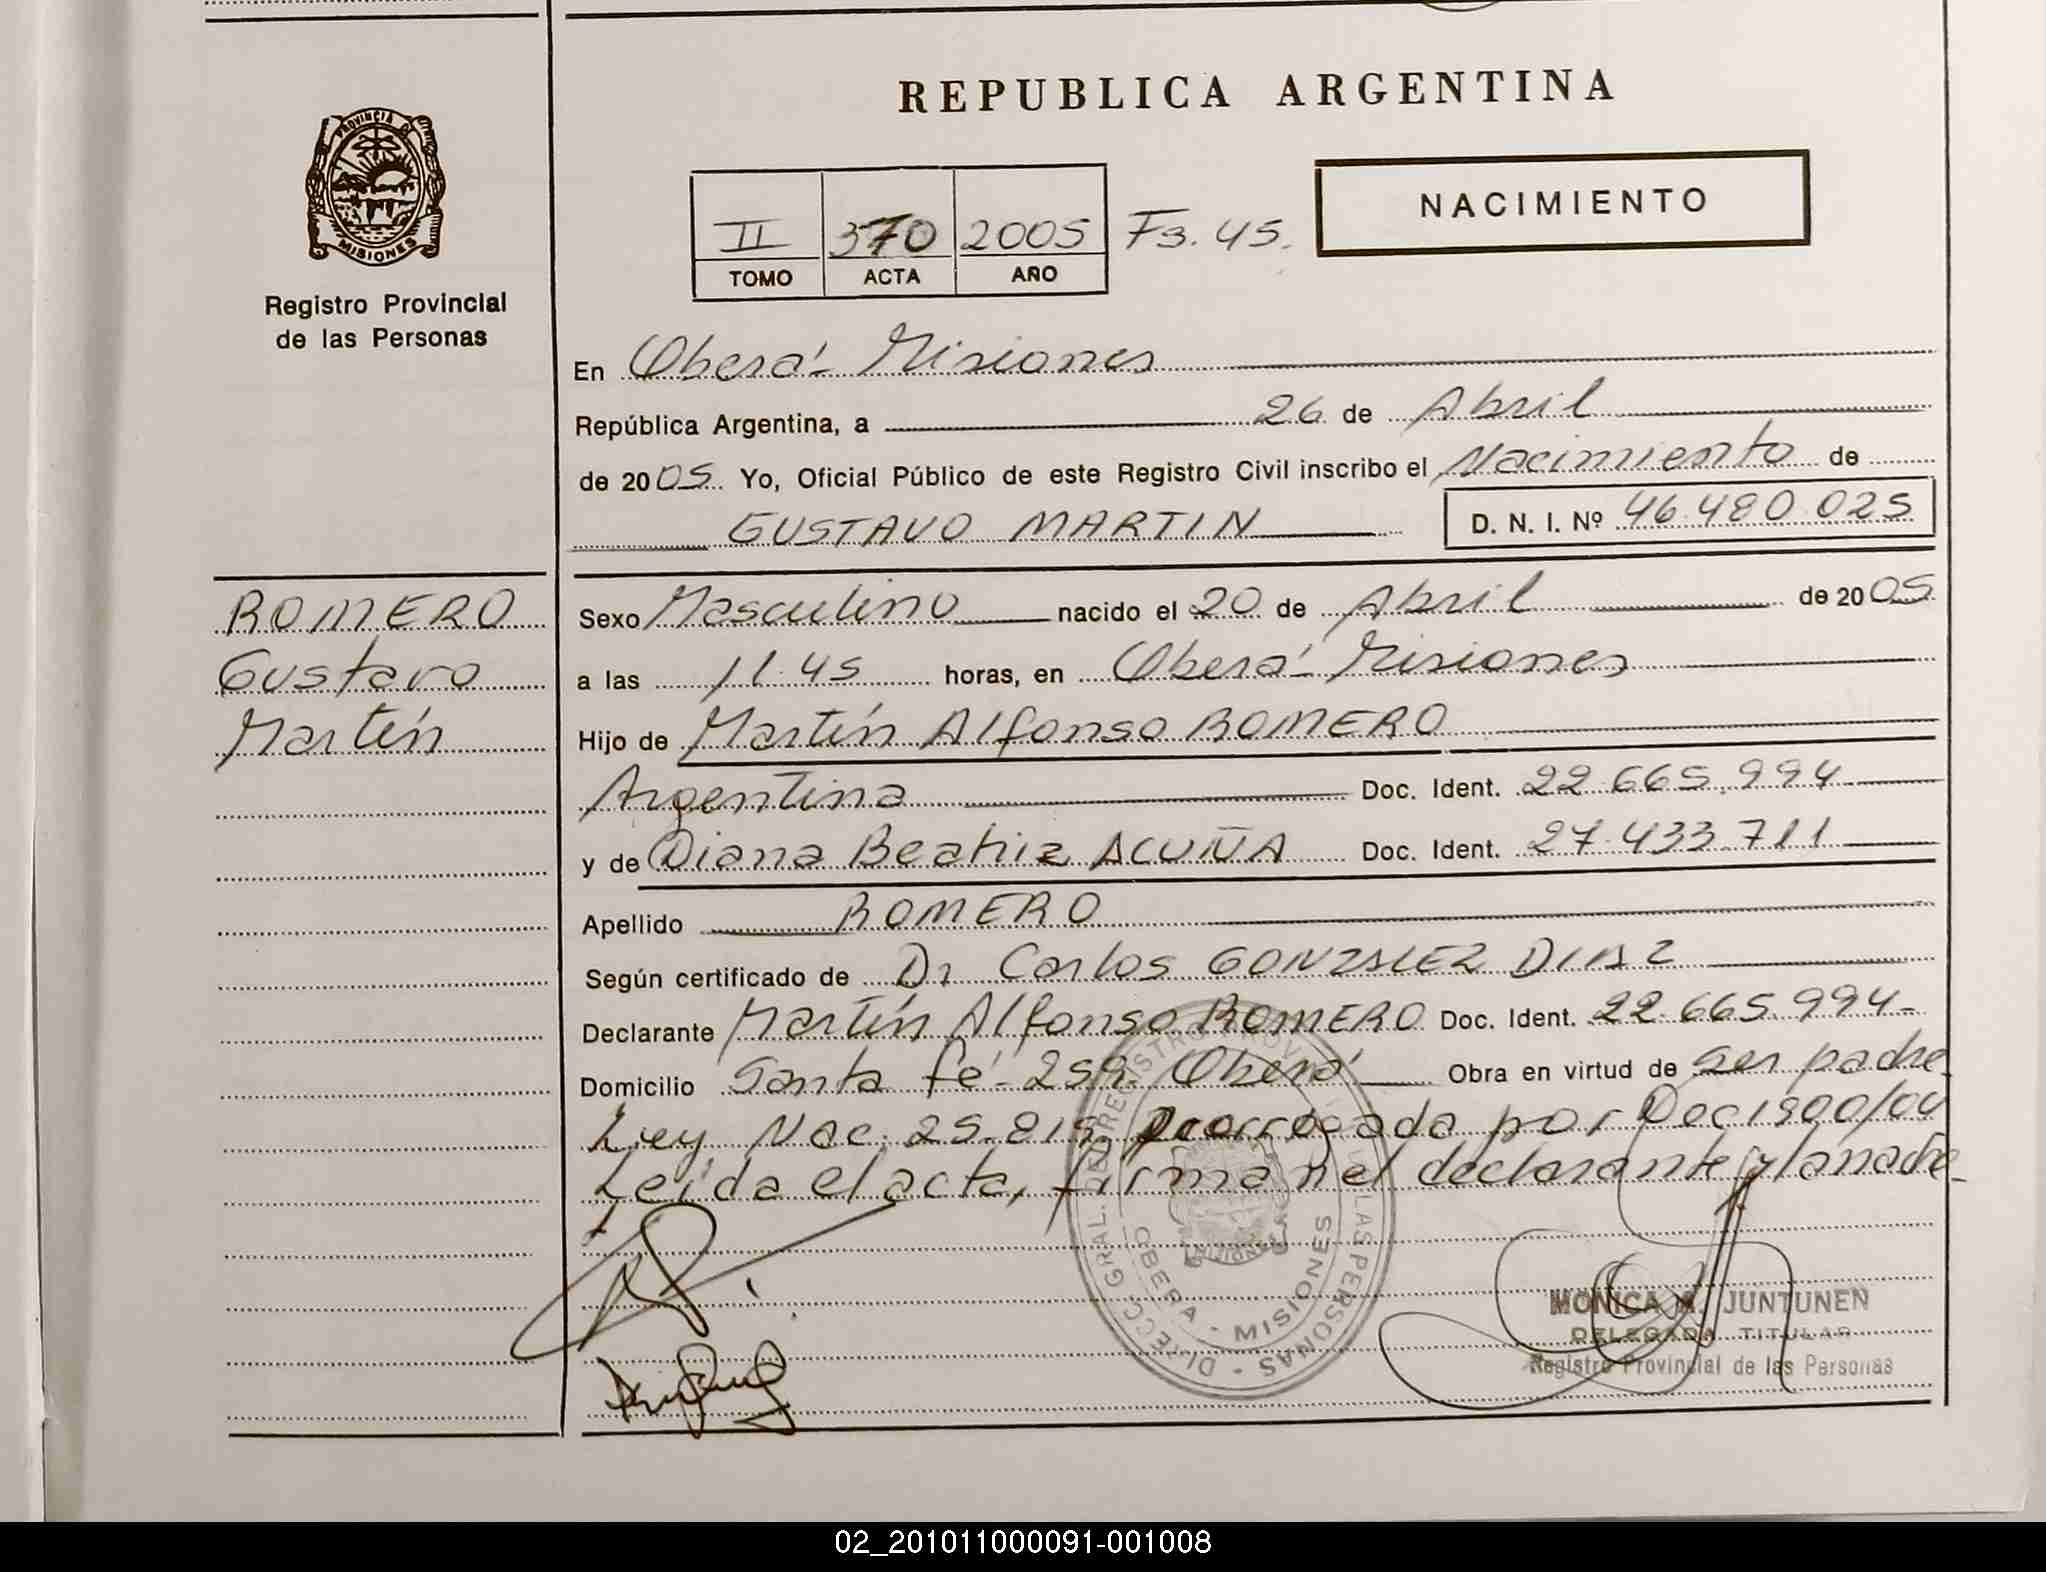 REPUBLICA ARGENTINA
PROVINCIA DE
MISIONES
Registro Provincial
de las Personas
NACIMIENTO
II 370 2005 Fs. 45.
TOMO ACTA AÑO
En Oberá - Misiones
República Argentina, a 26 de Abril
de 2005 Yo, Oficial Público de este Registro Civil inscribo el Nacimiento de
GUSTAVO MARTIN D. N. I. Nº 46.480.025
ROMERO
Gustavo
Martín
Sexo Masculino nacido el 20 de Abril de 2005
a las 11.45 horas, en Oberá - Misiones
Hijo de Martín Alfonso ROMERO
Argentina Doc. Ident. 22.665.994
y de Diana Beatriz ACUÑA Doc. Ident. 27.433.711
Apellido ROMERO
Según certificado de Dr Carlos GONZALEZ DIAZ
Declarante Martín Alfonso ROMERO Doc. Ident. 22.665.994-
Domicilio Santa fé - 259 - Oberá Obra en virtud de ser padre-
Ley Nac. 25.819 prorrogada por Dec 1900/04
Leída el acta, firman el declarante y la madre-
DIRECC. GRAL. DEL REGISTRO PROVINCIAL DE LAS PERSONAS
OBERA - MISIONES
MONICA A. JUNTUNEN
DELEGADA TITULAR
Registro Provincial de las Personas
02_201011000091-001008